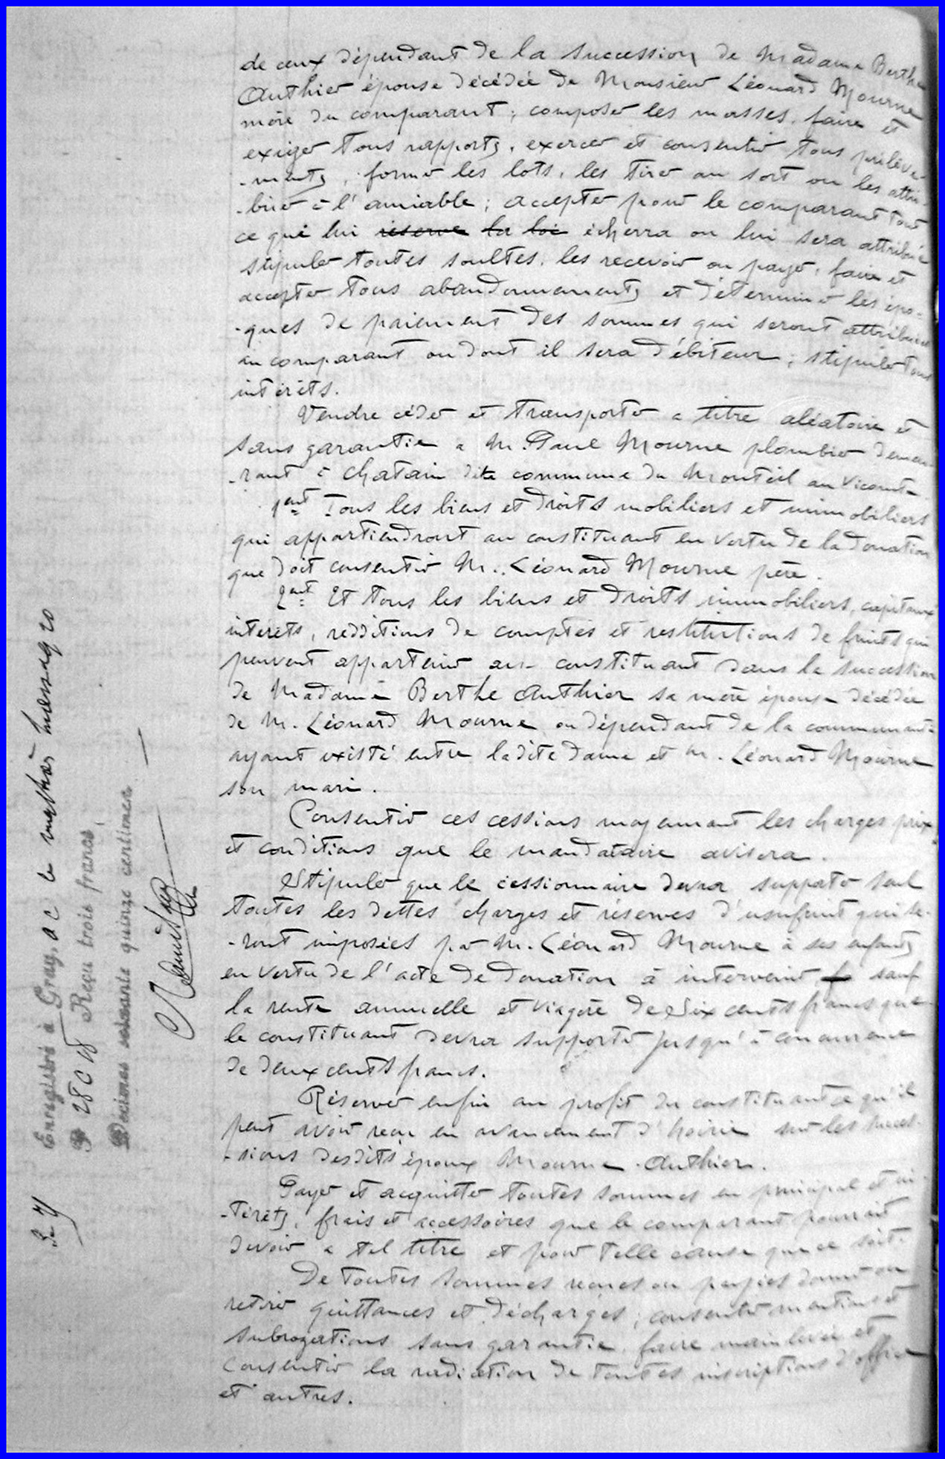 de ceux dépendant de la succession de Madame Berthe
Authier épouse décédée de Monsieur Léonard Mourne
mère du comparant ; composer les masses, faire et
exiger tous rapports, exercer et consentir tous prélève-
-ments, former les lots, les tirer au sort ou les attri-
-buer à l'amiable ; accepter pour le comparant tout
ce qui lui réserve la loi écherra ou lui sera attribué
stipuler toutes soultes, les recevoir ou payer, faire et
accepter tous abandonnements et déterminer les épo-
-ques de paiement des sommes qui seront attribuées
au comparant ou dont il sera débiteur ; stipuler tous
intérêts.
Vendre céder et transporter à titre aléatoire et
sans garantie à M. Paul Mourne plombier demeu-
-rant à Chatain dite commune du Monteil au Vicomte.
1ent Tous les biens et droits mobiliers et immobiliers
qui appartiendront au constituant en vertu de la donation
que doit consentir M. Léonard Mourne père.
2ent Et tous les biens et droits immobiliers, capitaux
intérêts, redditions de comptes et restitutions de fruits qui
peuvent appartenir au constituant dans la succession
de Madame Berthe Authier sa mère épouse décédée
de M. Léonard Mourne ou dépendant de la communauté
ayant existé entre ladite dame et M. Léonard Mourne
son mari.
Consentir ces cessions moyennant les charges prix
et conditions que le mandataire avisera.
Stipuler que le cessionnaire devra supporter seul
toutes les dettes charges et réserves d'usufruit qui se-
-ront imposées par M. Léonard Mourne à ses enfants
en vertu de l'acte de donation à intervenir sauf
la rente annuelle et viagère de Six cents francs que
le constituant devra supporter jusqu'à concurrence
de deux cents francs.
Réserver enfin au profit du constituant ce qu'il
peut avoir reçu en avancement d'hoirie sur les succes-
-sions desdits époux Mourne-Authier.
Payer et acquitter toutes sommes en principal et in-
-térêts, frais et accessoires que le comparant pourrait
devoir à tel titre et pour telle cause que ce soit.
De toutes sommes reçues ou payées donner ou
retirer quittances et décharges ; consentir mentions et
subrogations sans garantie, faire mainlevée et
consentir la radiation de toutes inscriptions d'office
et autres.
Enregistré à Gray, A C le
28 C 18 Reçu trois francs,
Décimes soixante quinze centimes